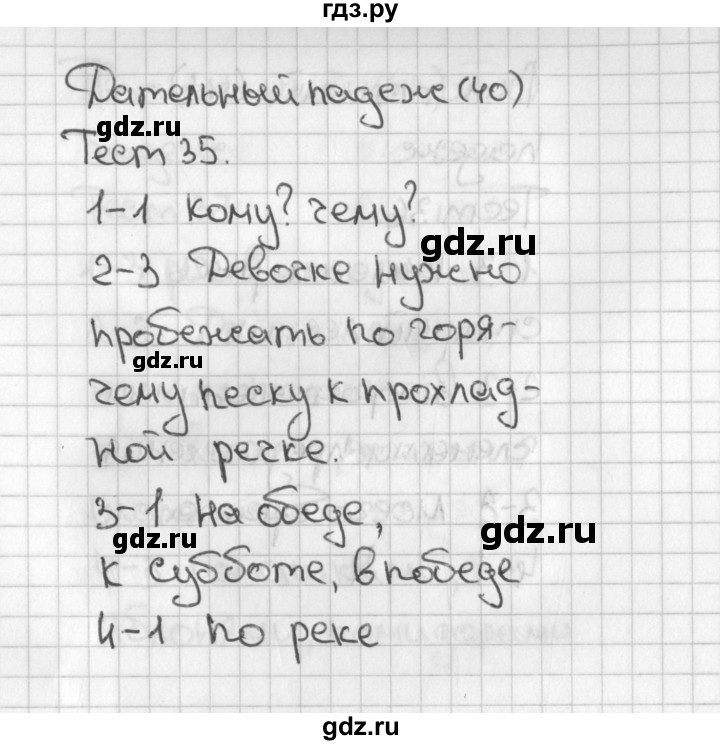 гдз.ру
Дательный падеж (40)
gdz.ru
Тест 35.
1-1 кому? чему?
gdz.ru
2-3 Девочке нужно
пробежать по горя-
gdz.ru
чему песку к прохлад-
ной речке.
3-1 на обеде,
gdz.ru
gdz.ru
к субботе, в победе
4-1 по реке
gdz.ru